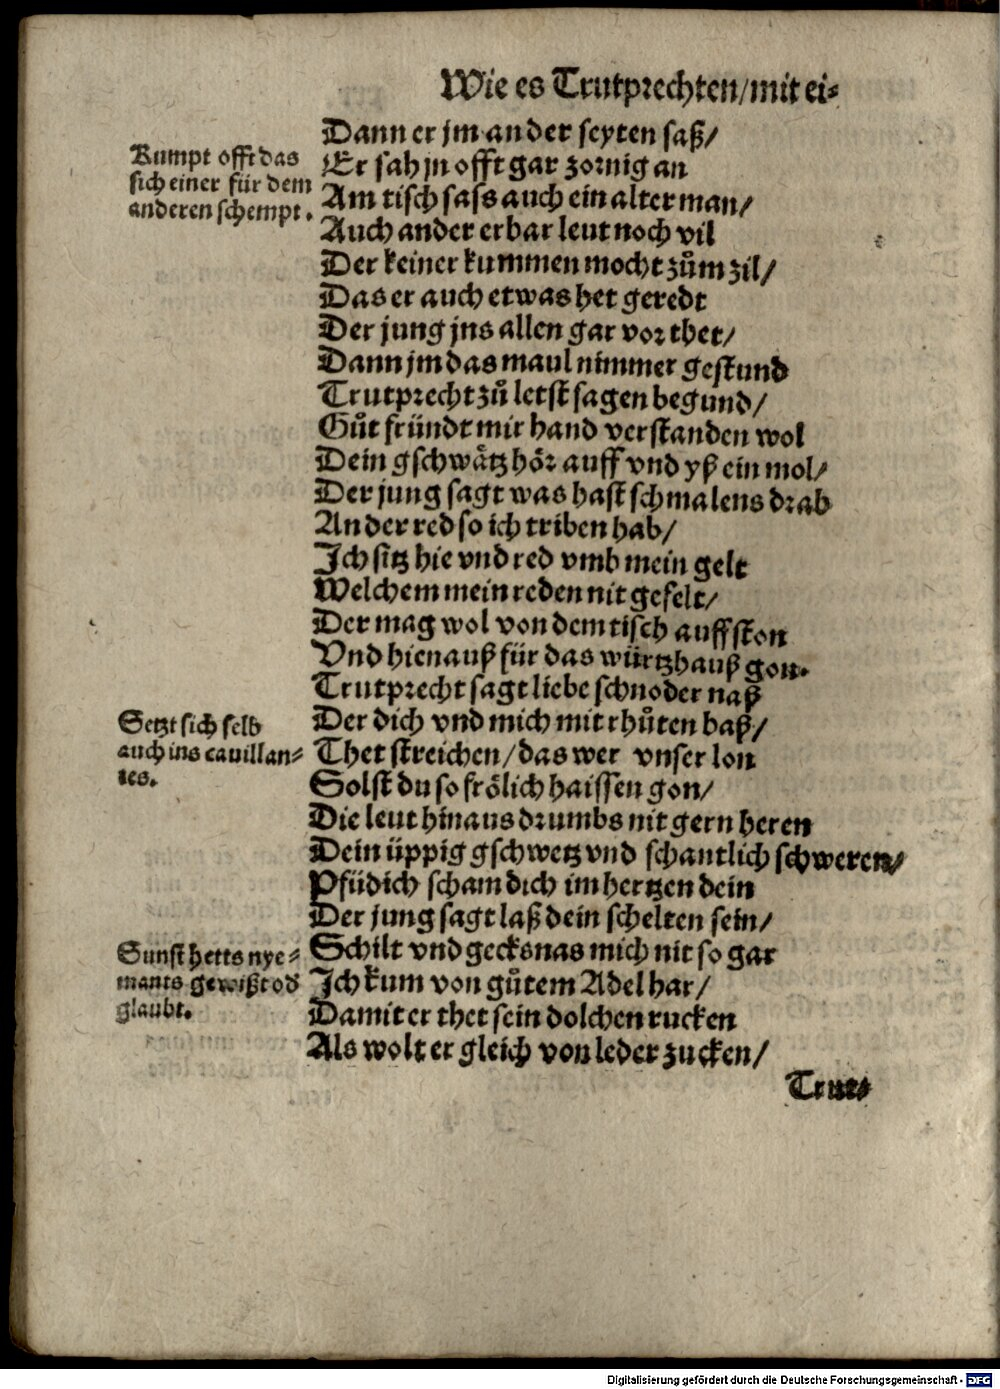 Wie es Trutprechten/mit ei⸗
Dann er jm an der seyten saß/
Kumpt offt das
sich einer für dem
anderen schempt.
Er sah jn offt gar zornig an
Am tisch sass auch ein alter man/
Auch ander erbar leut noch vil
Der keiner kummen mocht zům zil/
Das er auch etwas het geredt
Der jung jns allen gar vor thet/
Dann jm das maul nimmer gestund
Trutprecht zů letst sagen begund/
Gůt fründt mir hand verstanden wol
Dein gschwätz hör auff vnd yß ein mol/
Der jung sagt was hast schmalens drab
An der red so ich triben hab/
Ich sitz hie vnd red vmb mein gelt
Welchem mein reden nit gefelt/
Der mag wol von dem tisch auff ston
Vnd hienauß für das würtzhauß gon.
Trutprecht sagt liebe schnoder naß
Setzt sich selb
auch ins cauillan⸗
tes.
Der dich vnd mich mit rhůten baß/
Thet streichen/das wer vnser lon
Solst du so frölich haissen gon/
Die leut hinaus drumbs nit gern heren
Dein üppig gschwetz vnd schantlich schweren/
Pfüdich scham dich im hertzen dein
Der jung sagt laß dein schelten sein/
Sunst hetts nye⸗
mants gewißt od
glaubt.
Schilt vnd gecksnas mich nit so gar
Ich kum von gůtem Adel har/
Damit er thet sein dolchen rucken
Als wolt er gleich von leder zucken/
Trut⸗
Digitalisierung gefördert durch die Deutsche Forschungsgemeinschaft - DFG